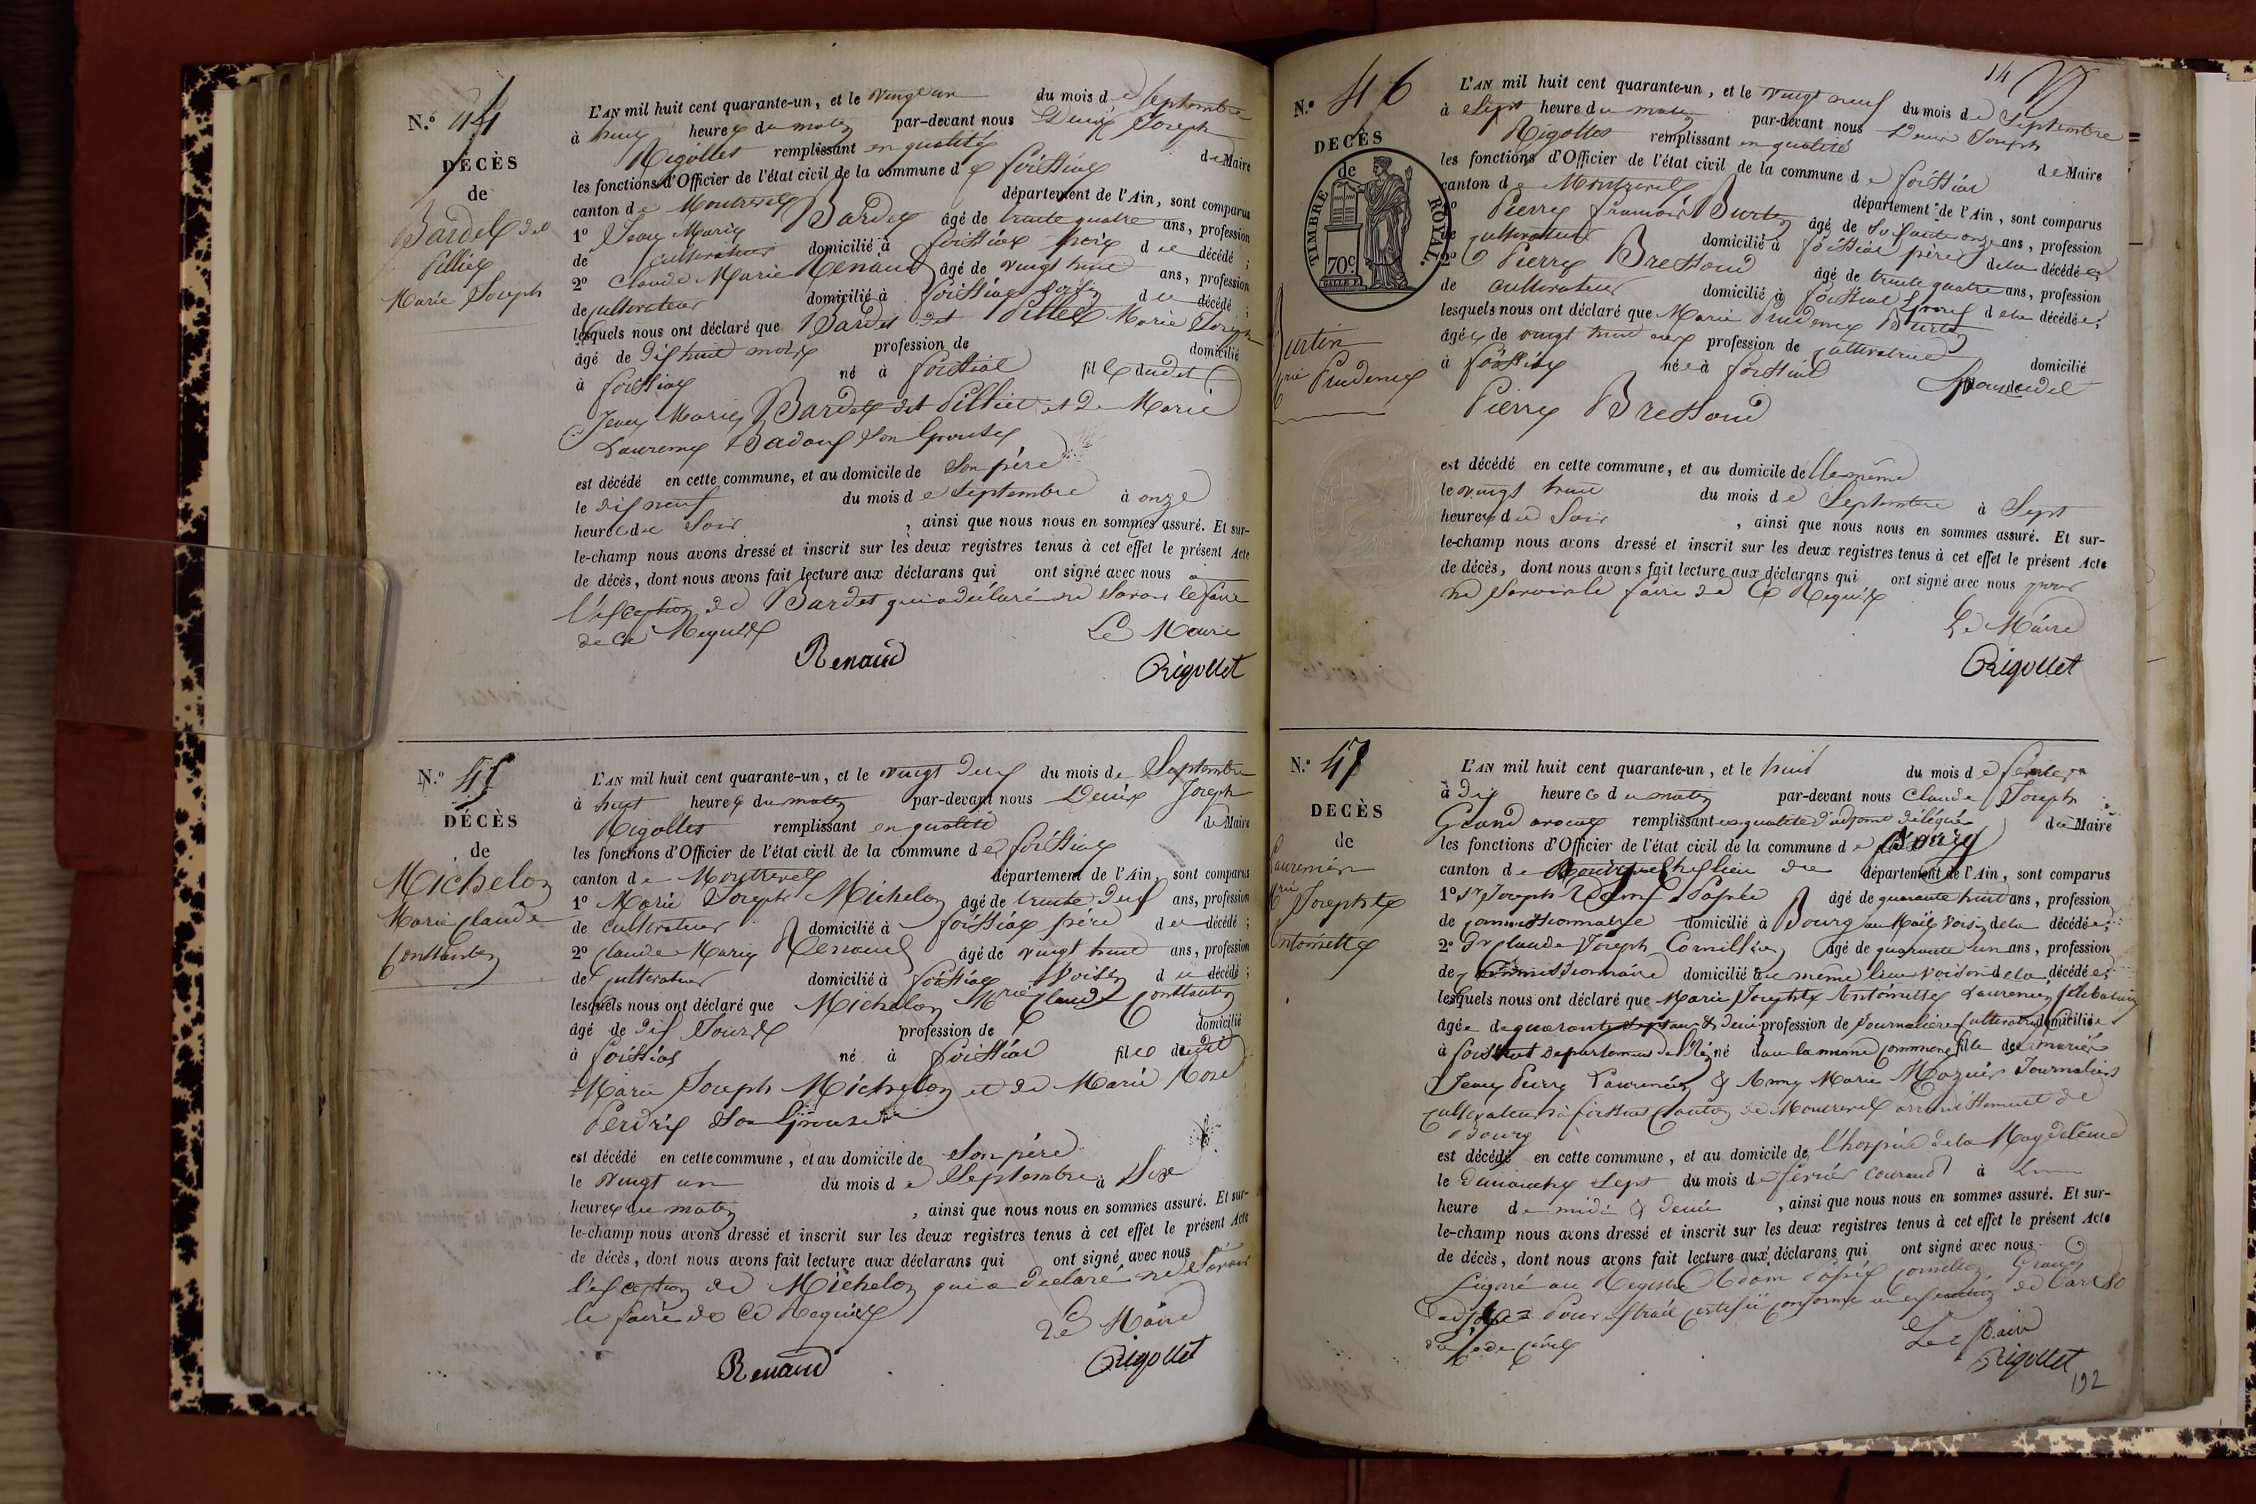 N.º 44
DÉCÈS
de
Bardet dit
Pilliet
Marie Joseph
L'AN mil huit cent quarante-un, et le vingt un du mois de Septembre
à heures du matin par-devant nous Denis Joseph
Rigollet remplissant en qualité de Maire
les fonctions d'Officier de l'état civil de la commune de foissiat
canton de Montrevel département de l'Ain, sont comparus
1º Jean Marie Bardet âgé de trente quatre ans, profession
de cultivateur domicilié à foissiat père du décédé ;
2º Claude Marie Renaud âgé de vingt huit ans, profession
de cultivateur domicilié à foissiat voisin du décédé ;
lesquels nous ont déclaré que Bardet dit Pillet Marie Joseph
âgé de dix huit mois profession de domicilié
à foissiat né à foissiat fils dudit
Jean Marie Bardet dit Pilliet et de Marie
Laurence Badoux son épouse
est décédé en cette commune, et au domicile de son père
le dix neuf du mois de Septembre à onze
heures du soir, ainsi que nous nous en sommes assuré. Et sur-
le-champ nous avons dressé et inscrit sur les deux registres tenus à cet effet le présent Acte
de décès, dont nous avons fait lecture aux déclarans qui ont signé avec nous à
l'exception de Bardet qui a déclaré ne savoir le faire
de ce Requis
Le Maire
Renaud Rigollet
N.º 45
DÉCÈS
de
Michelon
Marie Claude
Constantin
L'AN mil huit cent quarante-un, et le vingt deux du mois de Septembre
à huit heures du matin par-devant nous Denis Joseph
Rigollet remplissant en qualité de Maire
les fonctions d'Officier de l'état civil de la commune de foissiat
canton de Montrevel département de l'Ain, sont comparus
1º Marie Joseph Michelon âgé de trente deux ans, profession
de cultivateur domicilié à foissiat père du décédé ;
2º Claude Marie Renaud âgé de vingt huit ans, profession
de cultivateur domicilié à foissiat voisin du décédé ;
lesquels nous ont déclaré que Michelon Marie Claude Constantin
âgé de dix Jours profession de domicilié
à foissiat né à foissiat fils dudit
Marie Joseph Michelon et de Marie Rose
Perdrix son épouse
est décédé en cette commune, et au domicile de son père
le vingt un du mois de Septembre à Six
heures du matin, ainsi que nous nous en sommes assuré. Et sur-
le-champ nous avons dressé et inscrit sur les deux registres tenus à cet effet le présent Acte
de décès, dont nous avons fait lecture aux déclarans qui ont signé avec nous
l'exception de Michelon qui a déclaré ne Savoir
le faire de ce Requis
Le Maire
Renaud Rigollet
14
N.º 46
DÉCÈS
de
TIMBRE ROYAL.
70c
Burtin
Marie Prudence
L'AN mil huit cent quarante-un, et le vingt neuf du mois de Septembre
à Sept heure du matin par-devant nous Denis Joseph
Rigollet remplissant en qualité de Maire
les fonctions d'Officier de l'état civil de la commune de foissiat
canton de Montrevel département de l'Ain, sont comparus
1º Pierre françois Burtin âgé de Soixante onze ans, profession
de cultivateur domicilié à foissiat père de la décédée ;
2º Pierre Bressoud âgé de trente quatre ans, profession
de cultivateur domicilié à foissiat époux de la décédée ;
lesquels nous ont déclaré que Marie Prudence Burtin
âgée de vingt huit ans profession de cultivatrice domicilié
à foissiat née à foissiat épouse dudit
Pierre Bressoud
est décédé en cette commune, et au domicile de Elle même
le vingt huit du mois de Septembre à Sept
heures du Soir, ainsi que nous nous en sommes assuré. Et sur-
le-champ nous avons dressé et inscrit sur les deux registres tenus à cet effet le présent Acte
de décès, dont nous avons fait lecture aux déclarans qui ont signé avec nous pour
ne savoir le faire de ce Requis
Le Maire
Rigollet
N.º 47
DÉCÈS
de
Laurencin
Marie Josephte
Antoinette
L'AN mil huit cent quarante-un, et le huit du mois de février
à dix heures du matin par-devant nous Claude Joseph
Grand avocat remplissant en qualité d'adjoint délégué du Maire
les fonctions d'Officier de l'état civil de la commune de Bourg
canton de chef lieu du département de l'Ain, sont comparus
1º Sr Joseph âgé de quarante huit ans, profession
de commissionnaire domicilié à Bourg au Mail voisin de la décédée ;
2º Sr Claude Joseph Cornillion âgé de quarante un ans, profession
de commissionnaire domicilié au même lieu voisin de la décédée ;
lesquels nous ont déclaré que Marie Josephte Antoinette Laurencin célibataire
âgée de quarante sept ans & demi profession de Journalière cultivatrice domiciliée
à foissiat département de l'Ain né dans la même commune fille des mariés
Jean Pierre Laurencin & Anne Marie Moguin Journaliers
cultivateurs à foissiat canton de Montrevel arrondissement de
Bourg
est décédé en cette commune, et au domicile de l'hospice de la Magdeleine
le dimanche sept du mois de février courant à une
heure de midi & demie, ainsi que nous nous en sommes assuré. Et sur-
le-champ nous avons dressé et inscrit sur les deux registres tenus à cet effet le présent Acte
de décès, dont nous avons fait lecture aux déclarans qui ont signé avec nous.
Signé au Registre Grand
adjoint Pour extrait certifié conforme en exécution de l'art 80
du Code civil
Le Maire
Rigollet
192